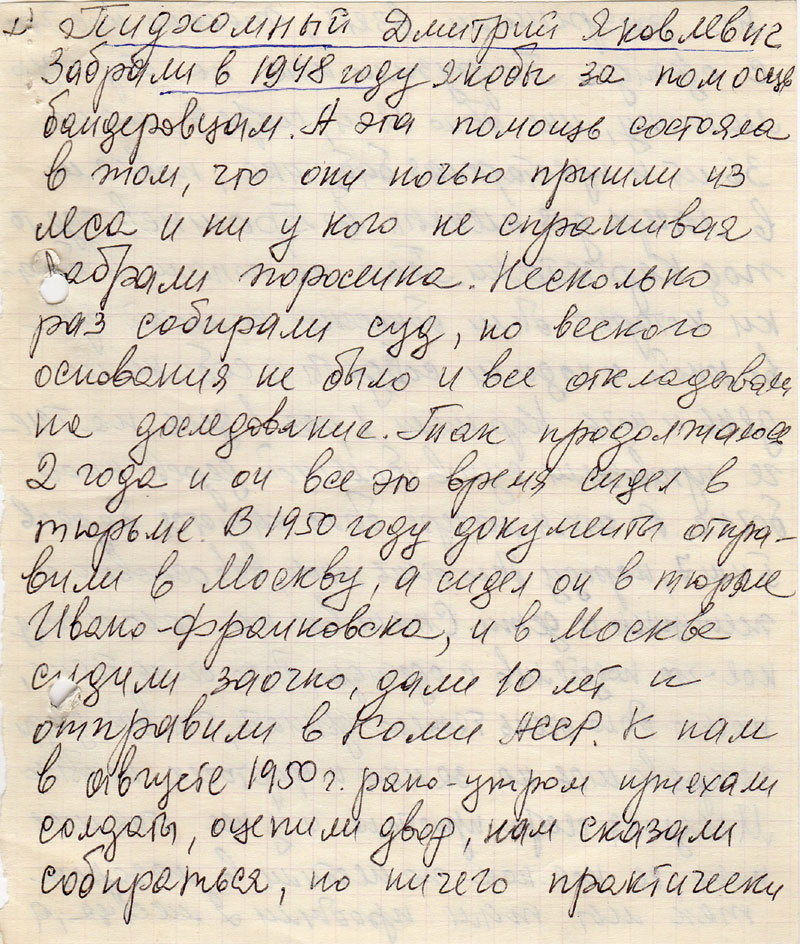 1) Пидхомный Дмитрий Яковлевич
Забрали в 1948 году якобы за помощь
бандеровцам. А эта помощь состояла
в том, что они ночью пришли из
леса и ни у кого не спрашивая
забрали поросенка. Несколько
раз собирали суд, но веского
основания не было и все откладывали
на доследование. Так продолжалось
2 года и он все это время сидел в
тюрьме. В 1950 году документы отпра-
вили в Москву, а сидел он в тюрьме
Ивано-Франковска, и в Москве
судили заочно, дали 10 лет и
отправили в Коми АССР. К нам
в августе 1950 г. рано-утром приехали
солдаты, оцепили двор, нам сказали
собираться, но ничего практически